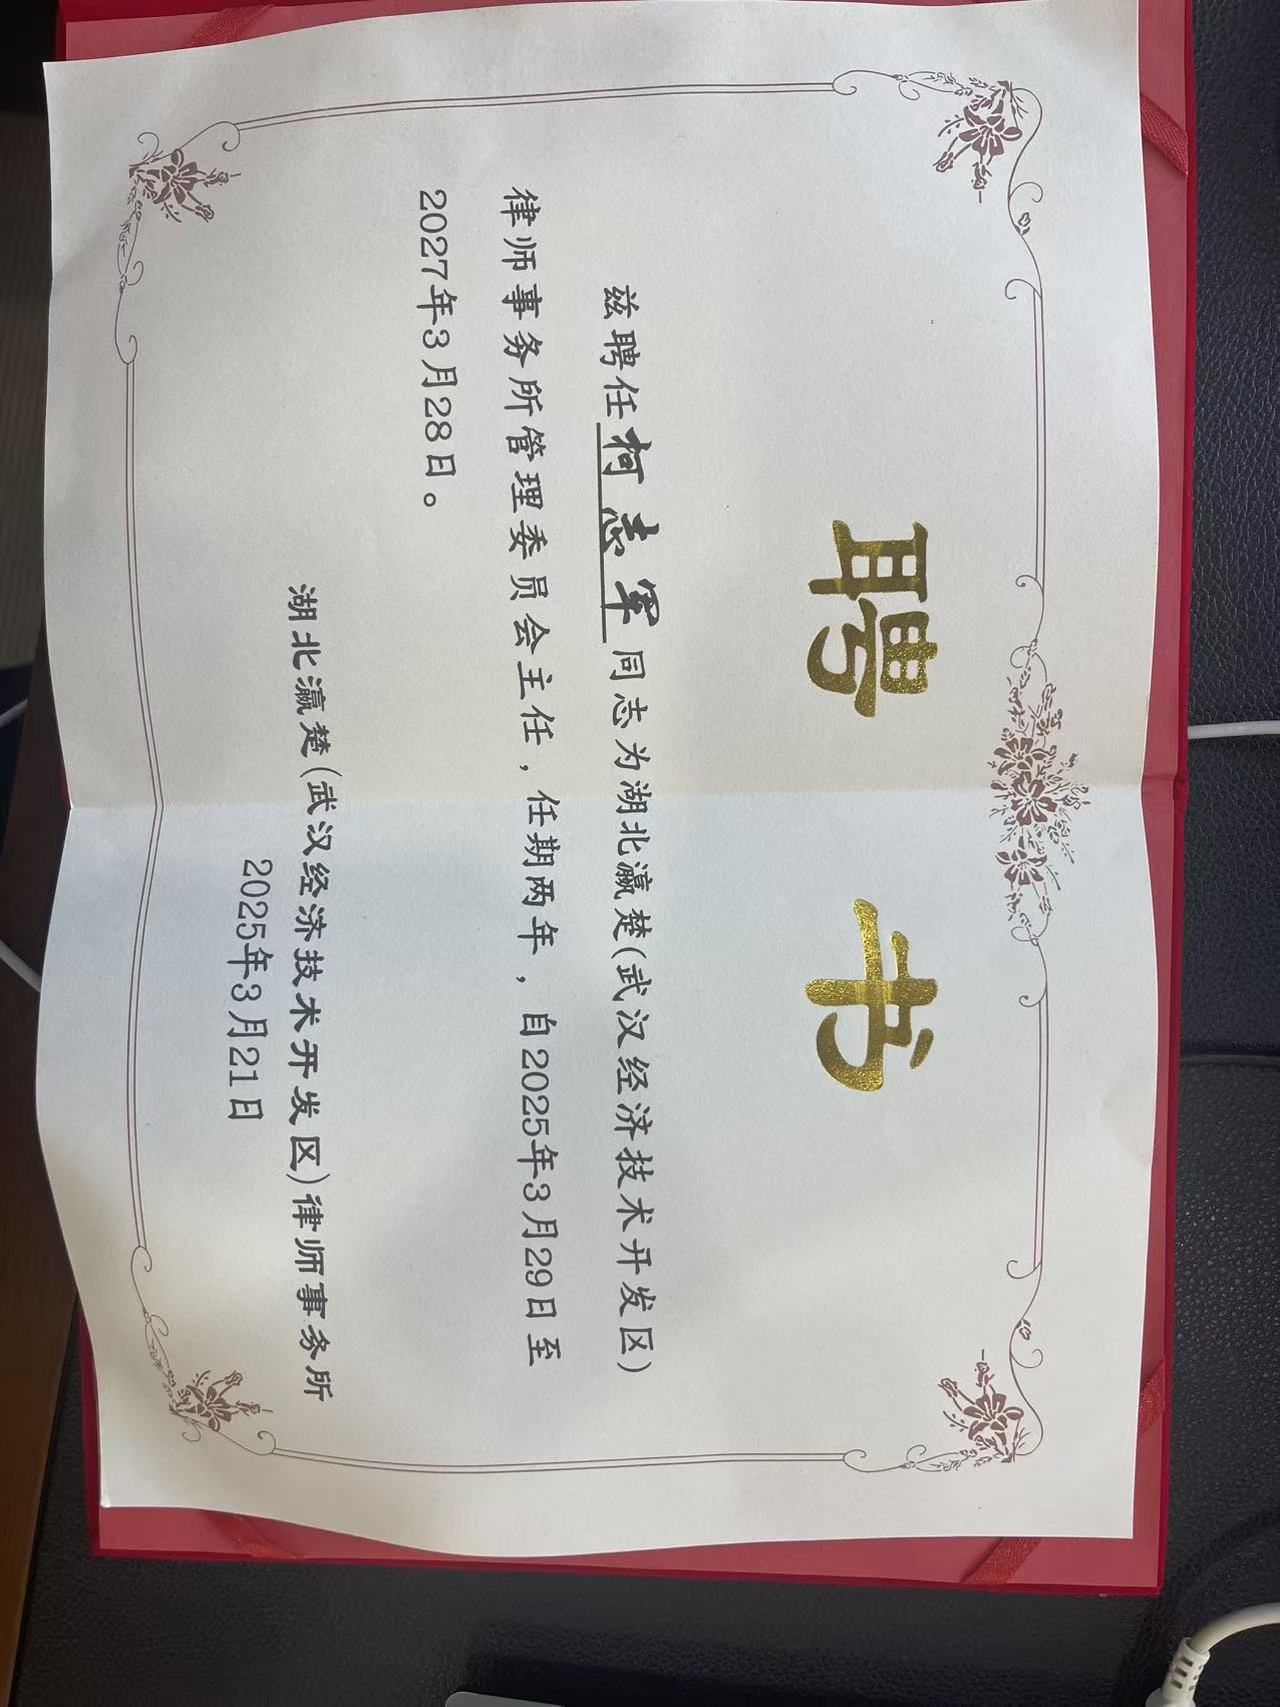 聘书
兹聘任柯志军同志为湖北瀛楚(武汉经济技术开发区)
律师事务所管理委员会主任，任期两年，自2025年3月29日至
2027年3月28日。
湖北瀛楚(武汉经济技术开发区)律师事务所
2025年3月21日